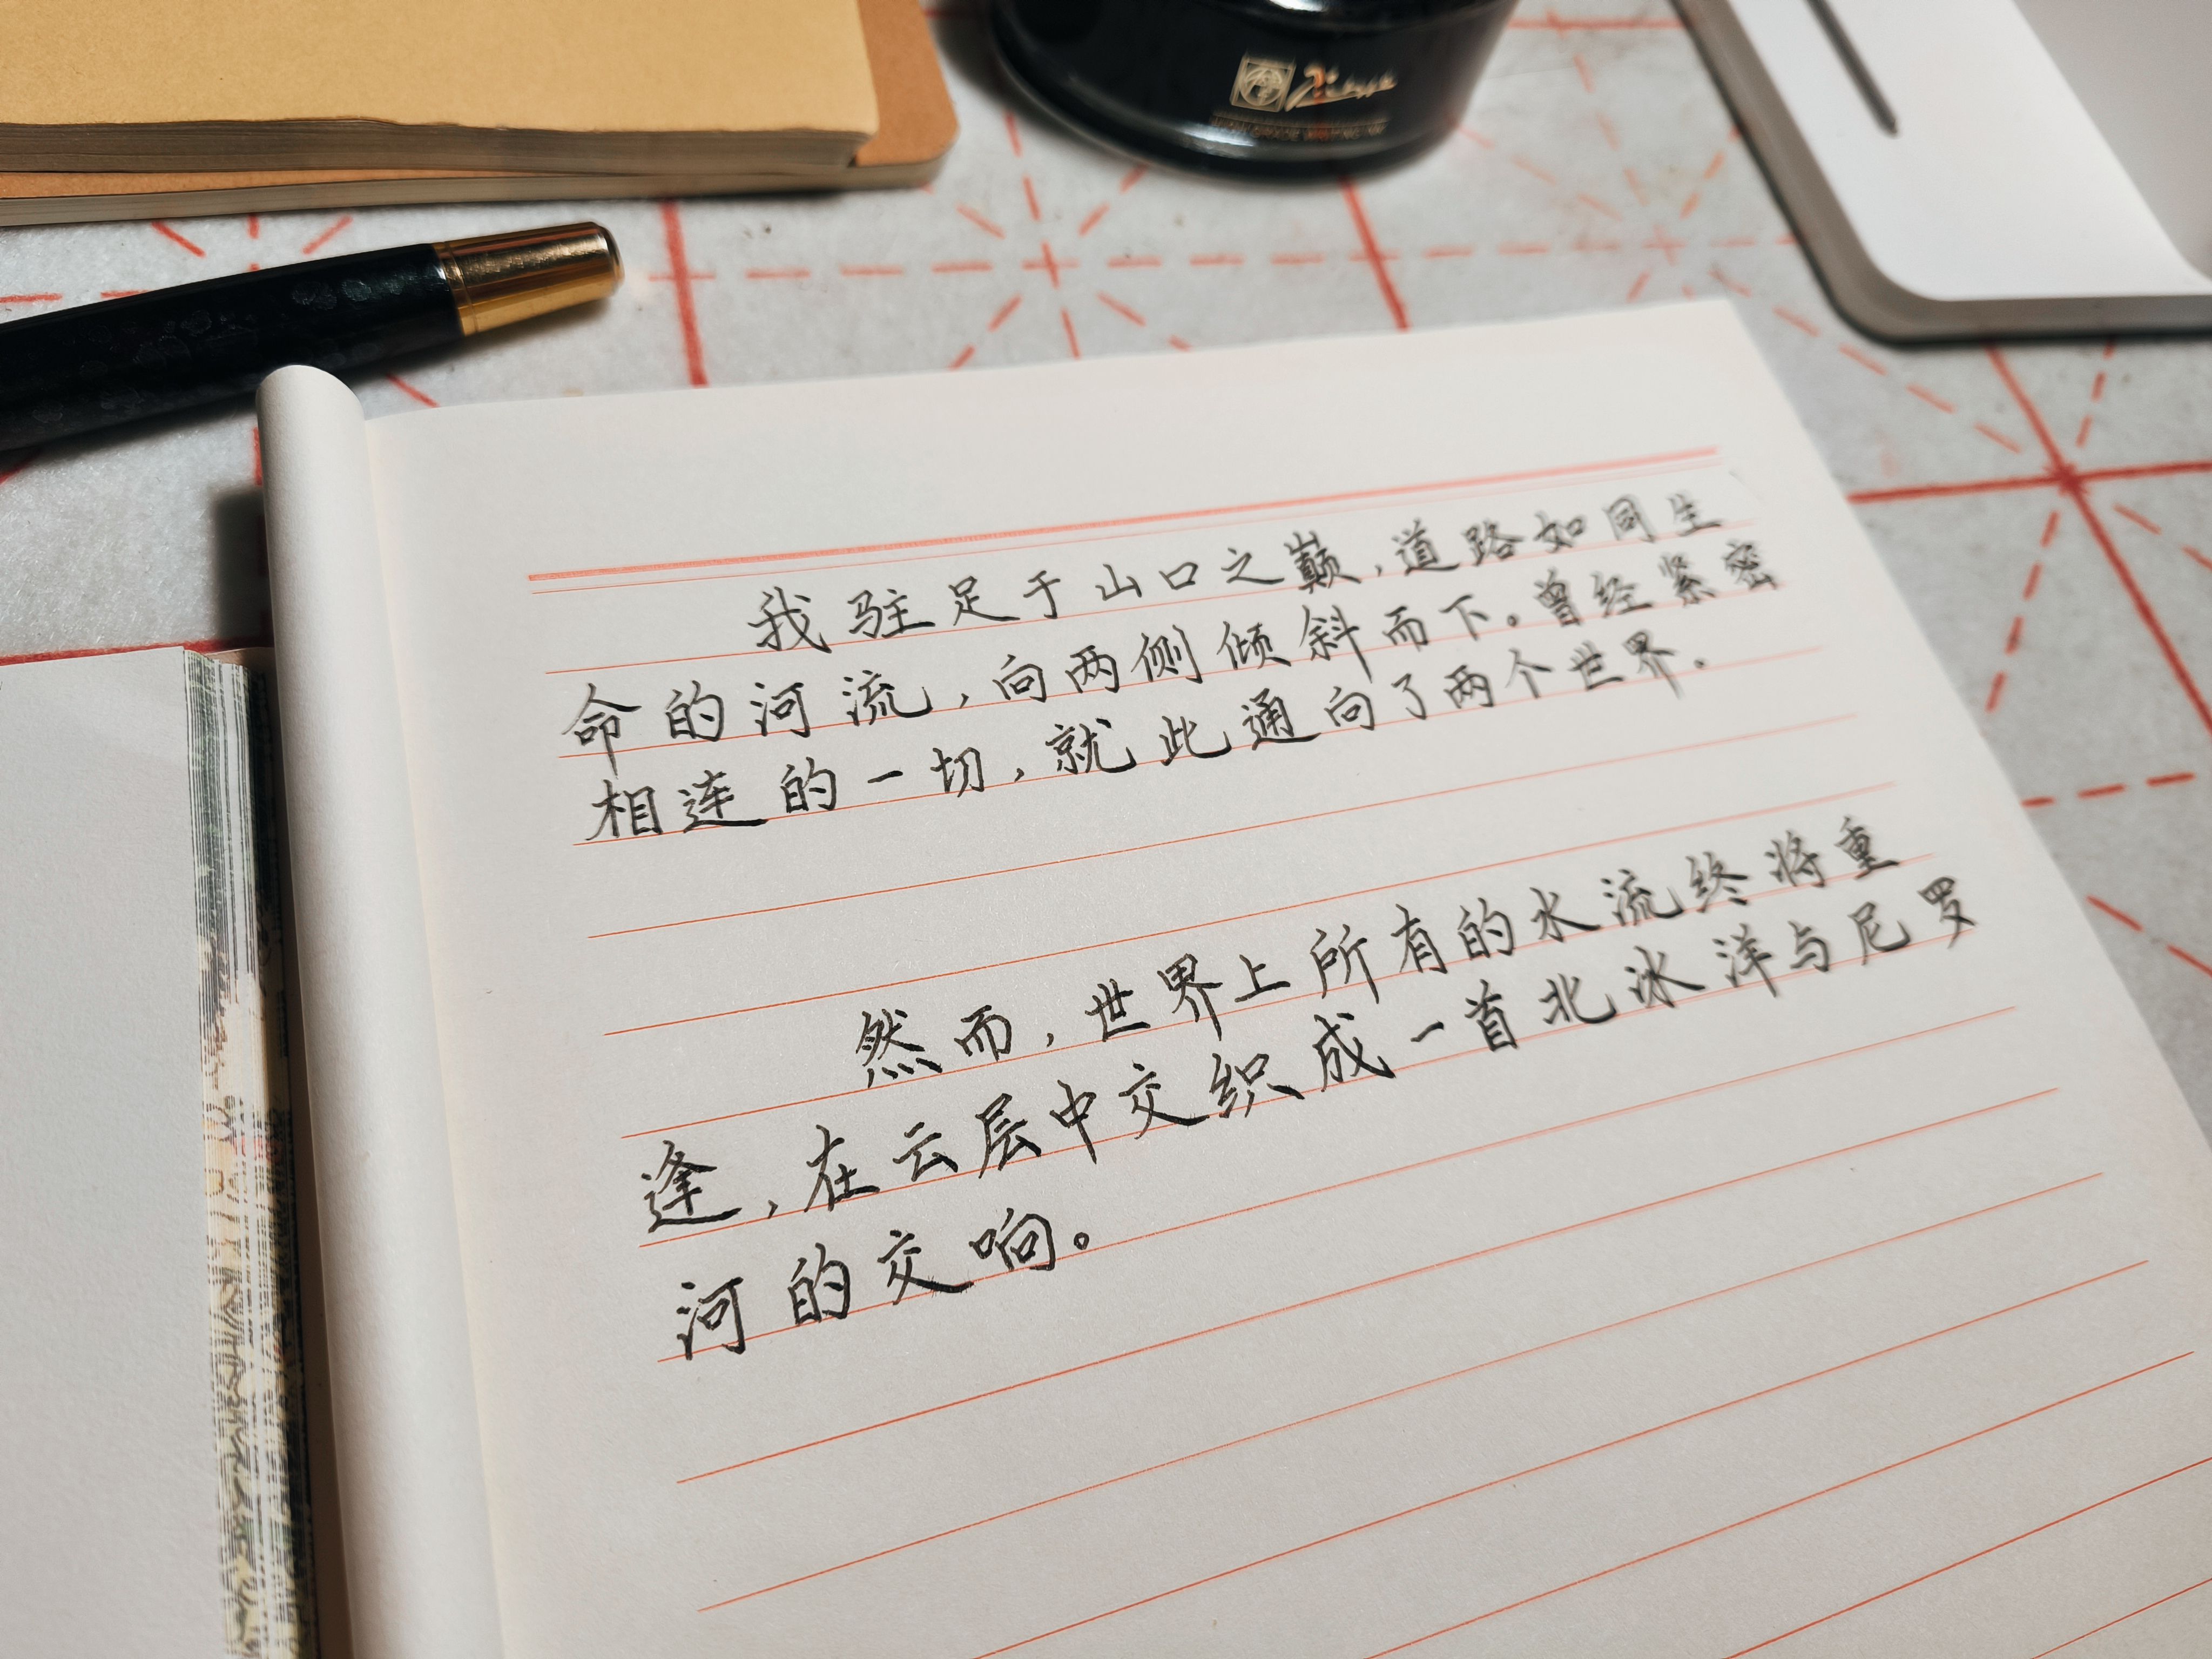 Picasso
我驻足于山口之巅，道路如同生
命的河流，向两侧倾斜而下。曾经紧密
相连的一切，就此通向了两个世界.
然而，世界上所有的水流终将重
逢，在云层中交织成一首北冰洋与尼罗
河的交响。